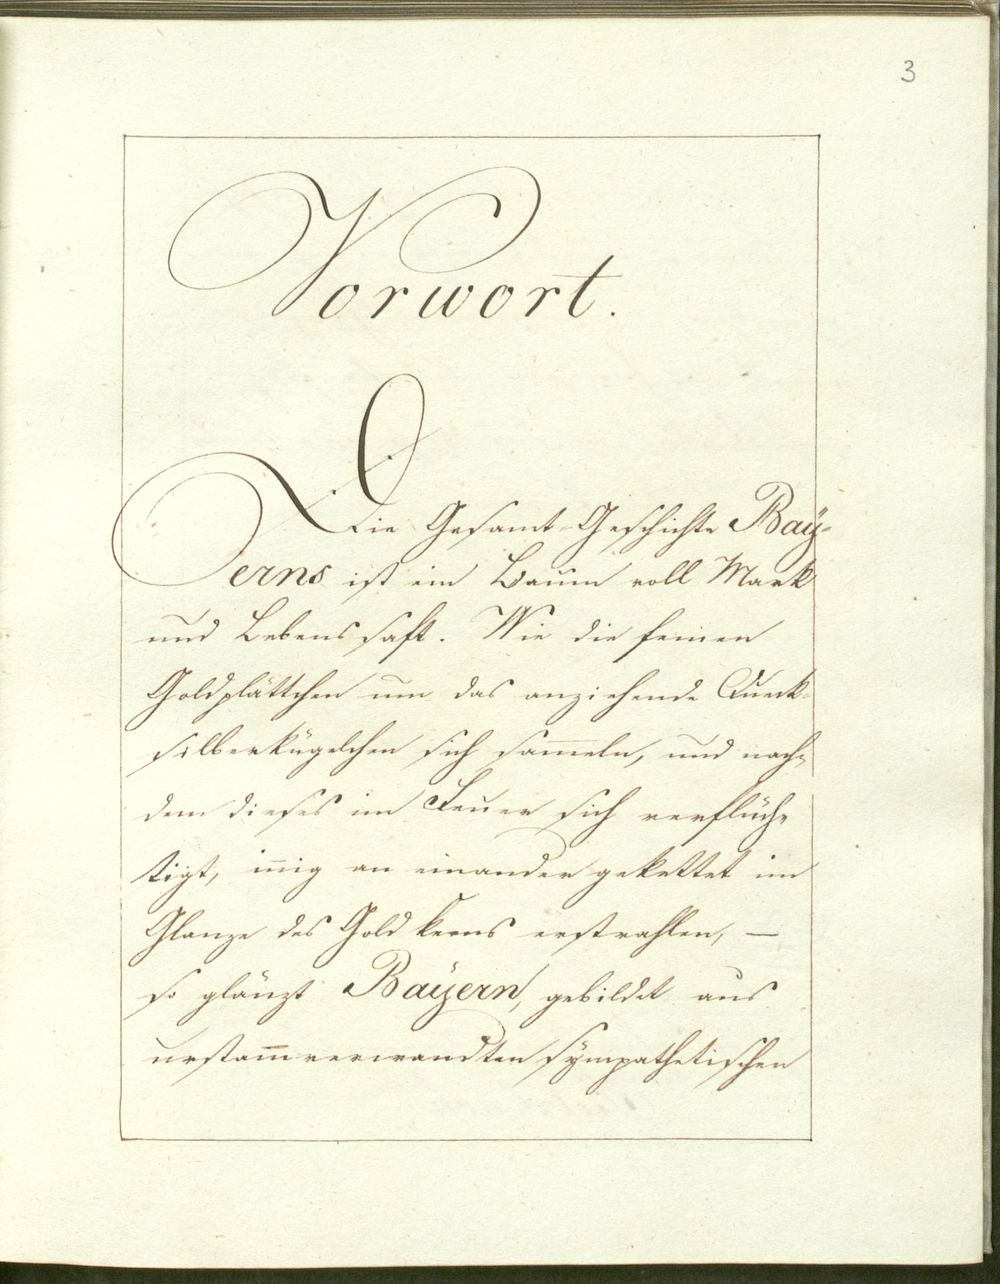 3
Vorwort.
Die Gesamt-Geschichte Baÿ-
erns ist ein Baum voll Mark
und Lebenssaft. Wie die feinen
Goldplättchen um das anziehende Queck-
silberkügelchen sich sam̅eln, und nach-
dem dieses im Feuer sich verflüch-
tigt, in̅ig an einander gekettet im
Glanze des Goldkerns erstrahlen, —
so glänzt Baÿern, gebildet aus
urstam̅verwandten sÿmpathetischen